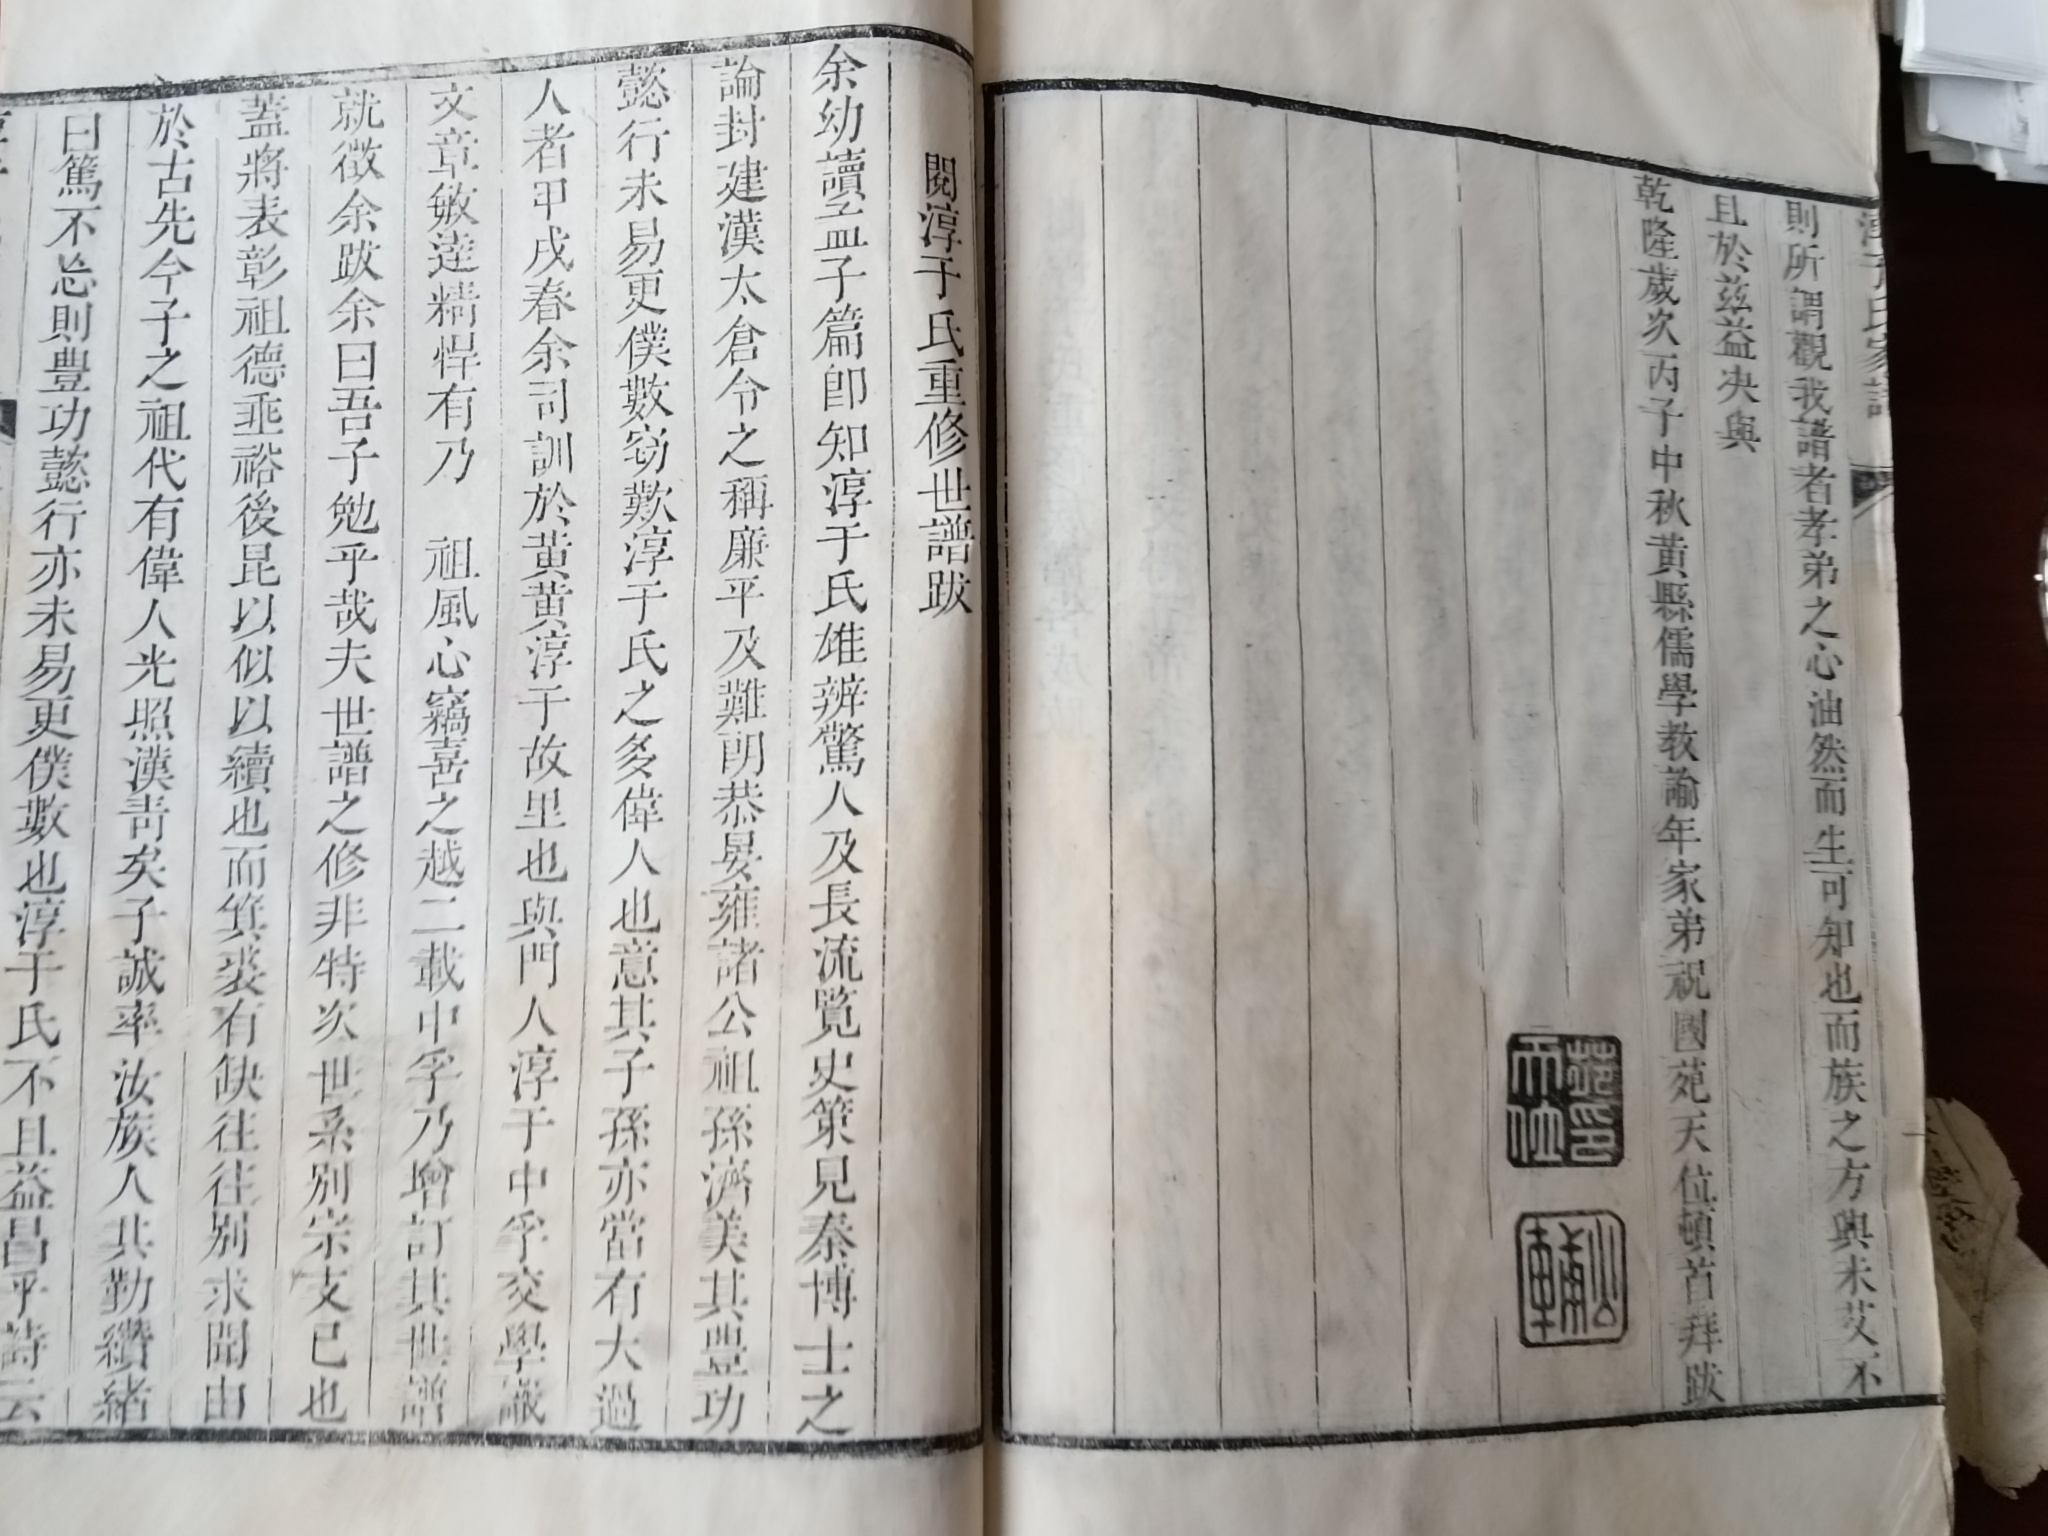 則所謂觀我譜者孝弟之心油然而生可知也而族之方興未艾不
且於兹益决與
乾隆歲次丙子中秋黃縣儒學教諭年家弟祝國苑天位頓首拜跋
苑印
天位
公輔
閱淳于氏重修世譜跋
余幼讀孟子篇卽知淳于氏雄辨驚人及長流覧史策見秦博士之
論封建漢太倉令之稱廉平及難朗恭晏雍諸公祖孫濟美其豐功
懿行未易更僕數窃歎淳于氏之多偉人也意其子孫亦當有大過
人者甲戌春余司訓於黃黃淳于故里也與門人淳于中孚交學識
文章敏逹精悍有乃 祖風心竊喜之越二載中孚乃增訂其世譜
就徵余跋余曰吾子勉乎哉夫世譜之修非特次世系別宗支已也
蓋將表彰祖德垂裕後昆以似以續也而箕裘有缺往往别求聞由
於古先今子之祖代有偉人光照漢靑矣子誠率汝族人共勤纘緒
曰篤不忘則豊功懿行亦未易更僕數也淳于氏不且益昌乎詩云